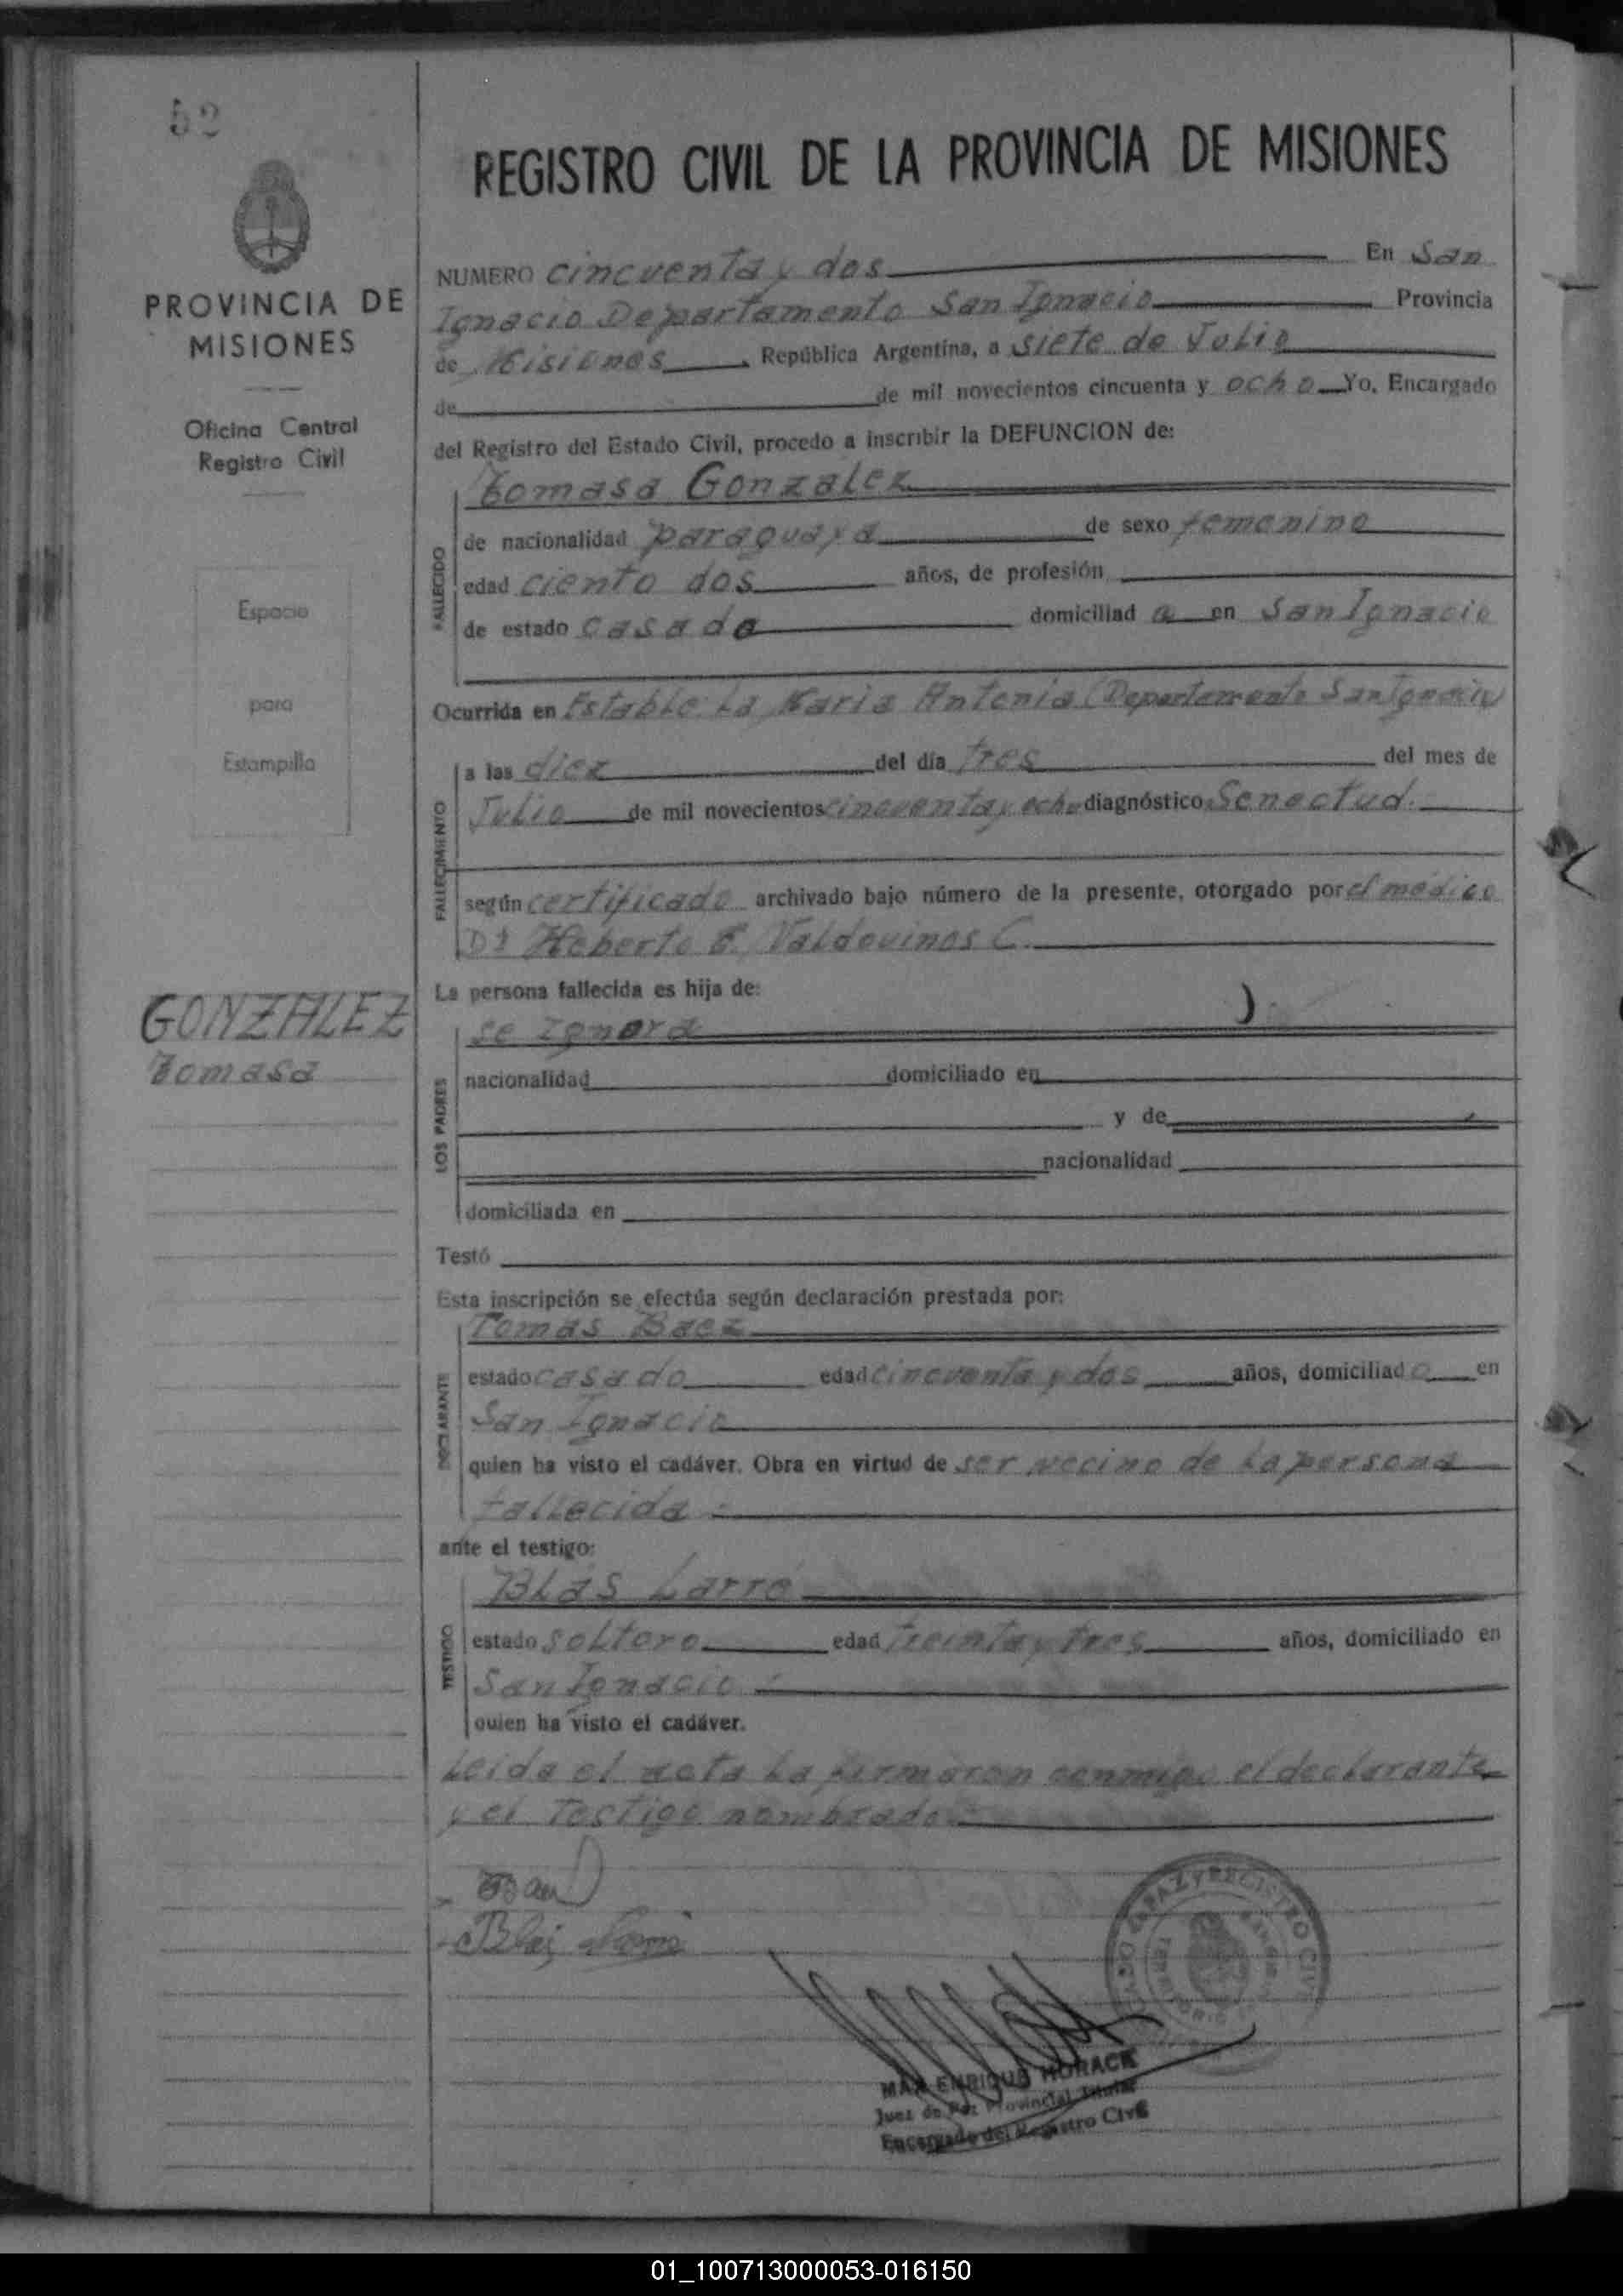 52
PROVINCIA DE
MISIONES
Oficina Central
Registro Civil
Espacio
para
Estampilla
GONZALEZ
Tomasa
REGISTRO CIVIL DE LA PROVINCIA DE MISIONES
NUMERO cincuenta y dos En San
Ignacio Departamento San Ignacio Provincia
de Misiones, República Argentina, a siete de Julio
de de mil novecientos cincuenta y ocho Yo, Encargado
del Registro del Estado Civil, procedo a inscribir la DEFUNCION de:
Tomasa Gonzalez
FALLECIDO
de nacionalidad paraguaya de sexo femenino
edad ciento dos años, de profesión
de estado casada domiciliad a en San Ignacio
Ocurrida en Estable. La Maria Antonia (Departamento San Ignacio)
FALLECIMIENTO
a las diez del día tres del mes de
Julio de mil novecientos cincuenta y ocho diagnóstico: Senectud.
según certificado archivado bajo número de la presente, otorgado por el médico
Dr Heberto E. Valdovinos C.
La persona fallecida es hija de:
LOS PADRES
se Ignora
nacionalidad domiciliado en
y de
nacionalidad
domiciliada en
Testó
Esta inscripción se efectúa según declaración prestada por:
DECLARANTE
Tomás Baez
estado casado edad cincuenta y dos años, domiciliad o en
San Ignacio
quien ha visto el cadáver. Obra en virtud de ser vecino de la persona
fallecida.-
ante el testigo:
TESTIGO
Blás Larré
estado soltero edad treinta y tres años, domiciliado en
San Ignacio.-
quien ha visto el cadáver.
Leida el acta la firmaron conmigo el declarante
y el Testigo nombrado.-
Blas
MAX ENRIQUE HORACK
Juez de Paz Provincial Titular
Encargado del Registro Civil
JUZGADO DE PAZ Y REGISTRO CIVIL
01_100713000053-016150